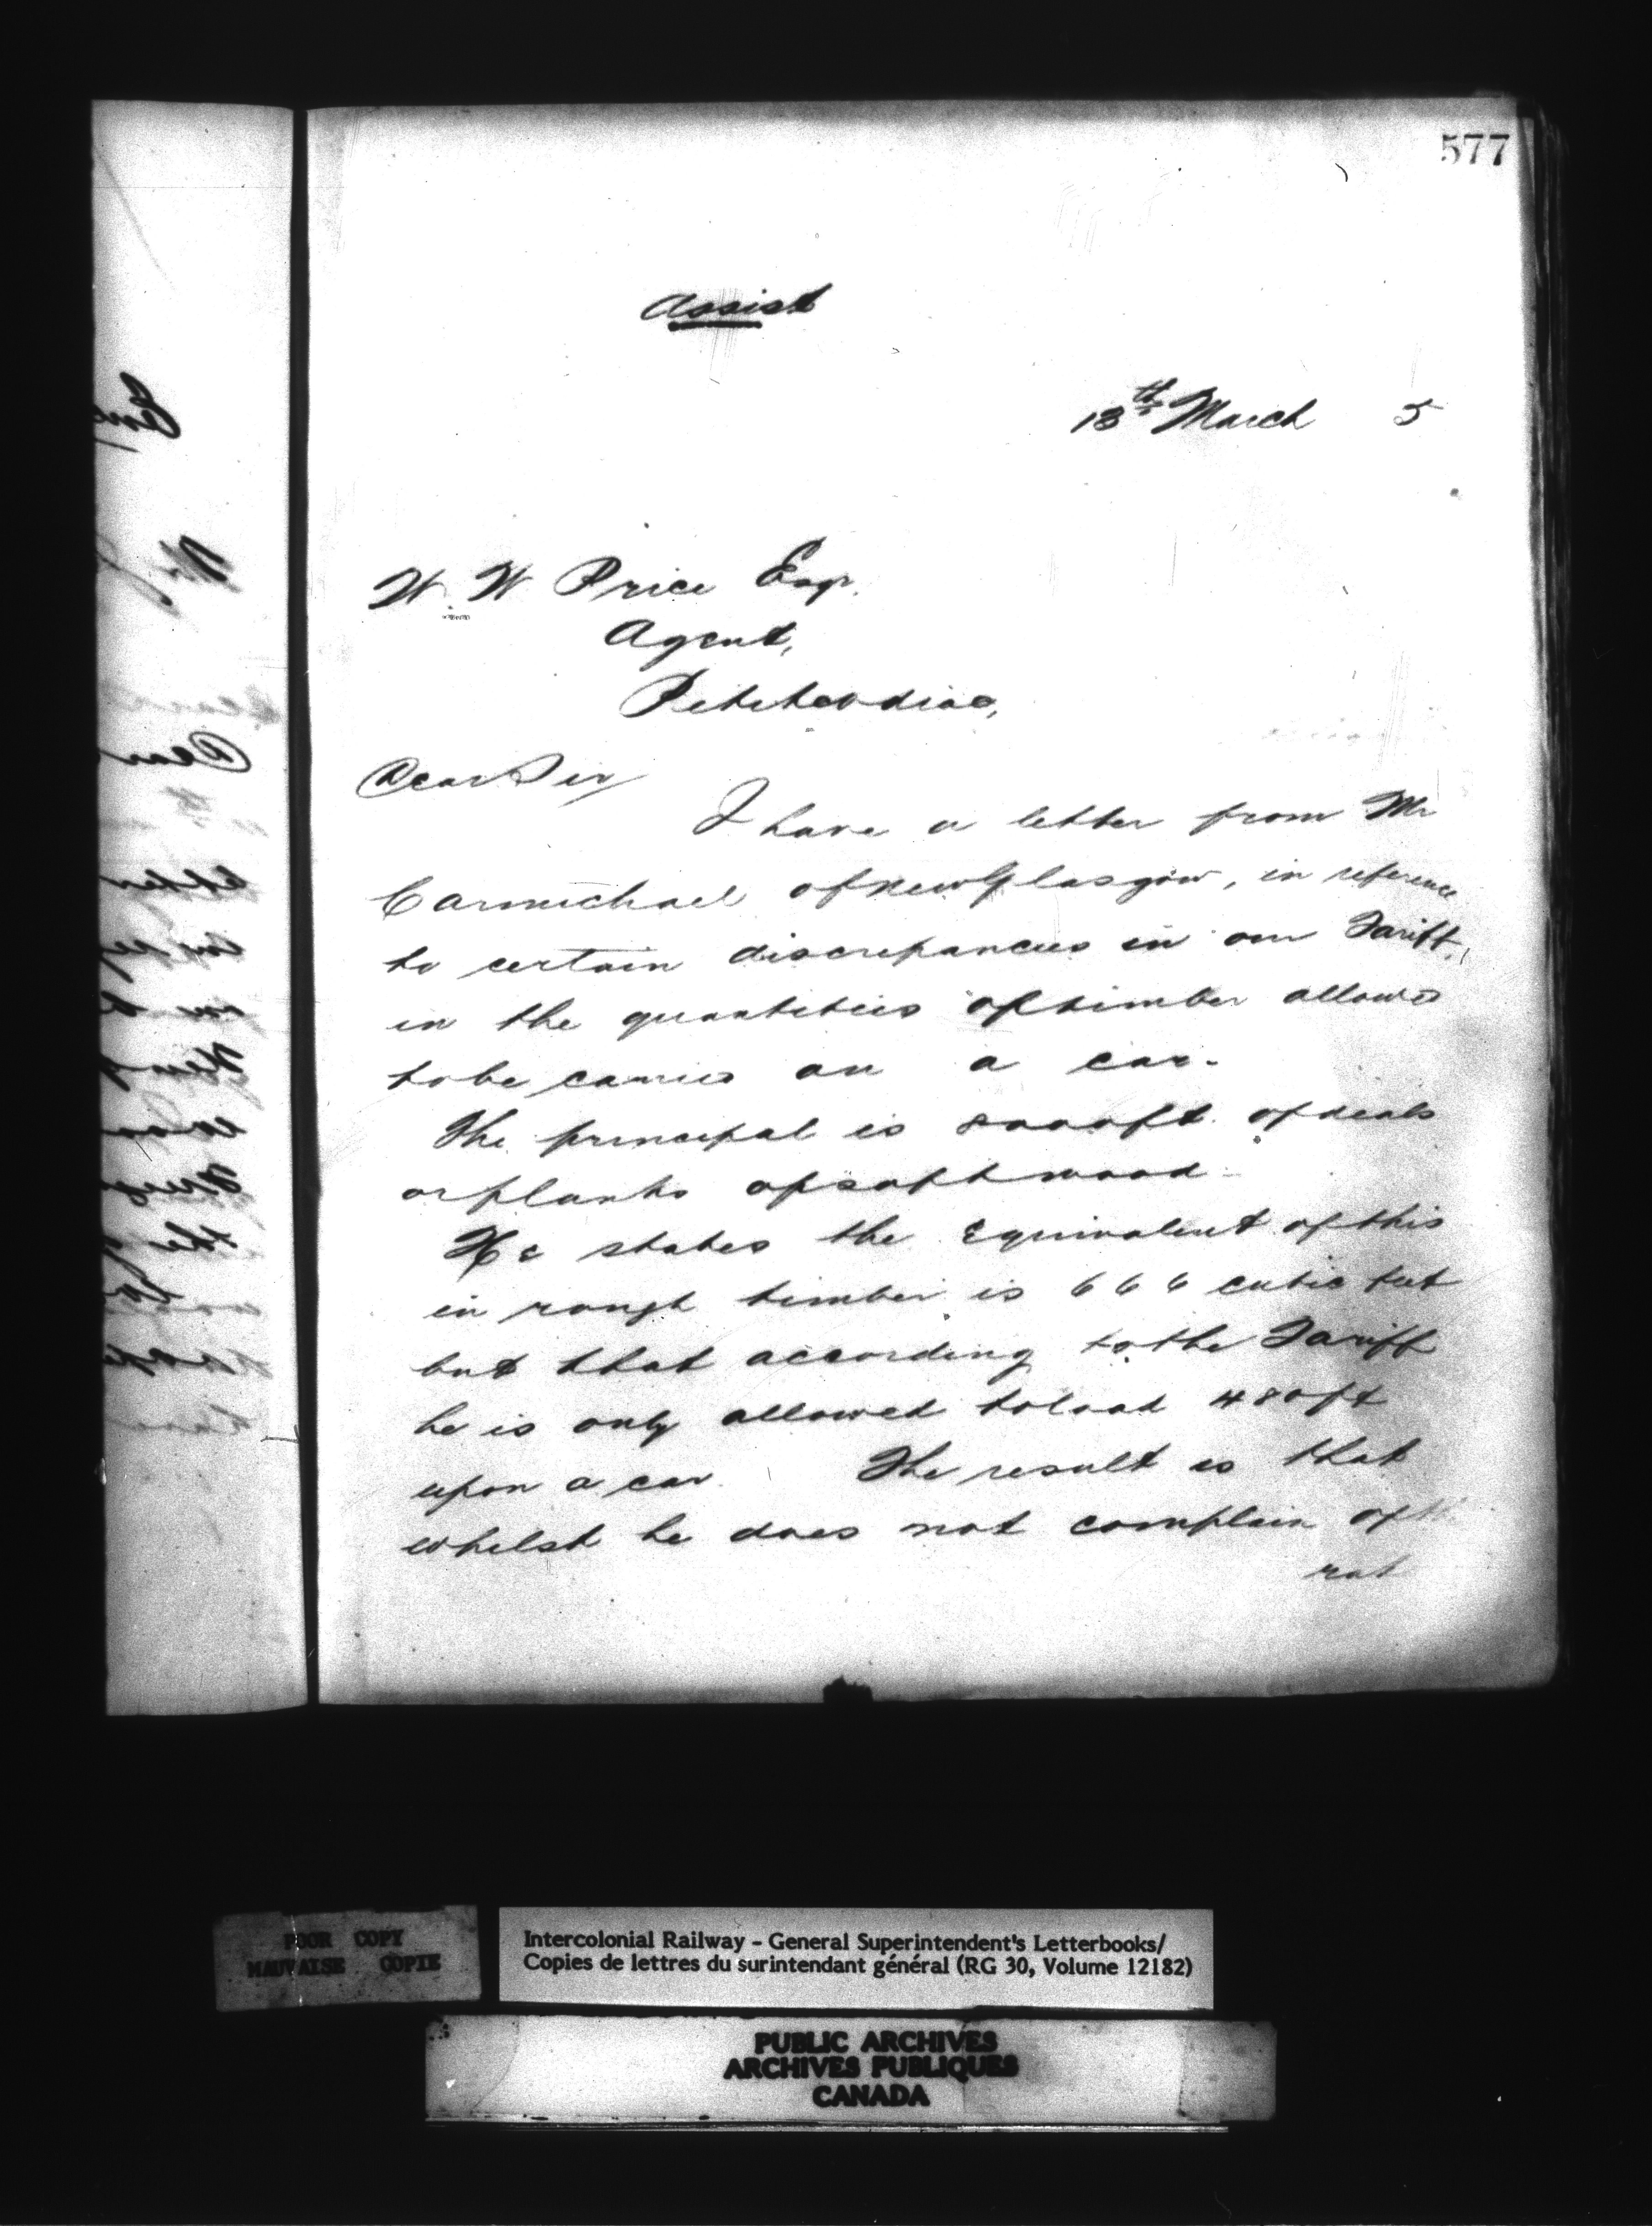 577
Assist
13th March 5
W. W Price Esqr.
Agent,
Petitcodiac,
Dear Sir/
I have a letter from Mr
Carmichael of New Glasgow, in reference
to certain discrepancies in our Tariff,
in the quantities of timber allowed
to be carried on a car.
The principal is 8000 ft. of deals
or planks of soft wood-
He states the Equivalent of this
in rough timber is 666 cubic feet
but that according to the Tariff
he is only allowed to load 480 ft
upon a car. The result is that
whilst he does not complain of
POOR COPY
MAUVAISE COPIE
Intercolonial Railway - General Superintendent's Letterbooks/
Copies de lettres du surintendant général (RG 30, Volume 12182)
PUBLIC ARCHIVES
ARCHIVES PUBLIQUES
CANADA